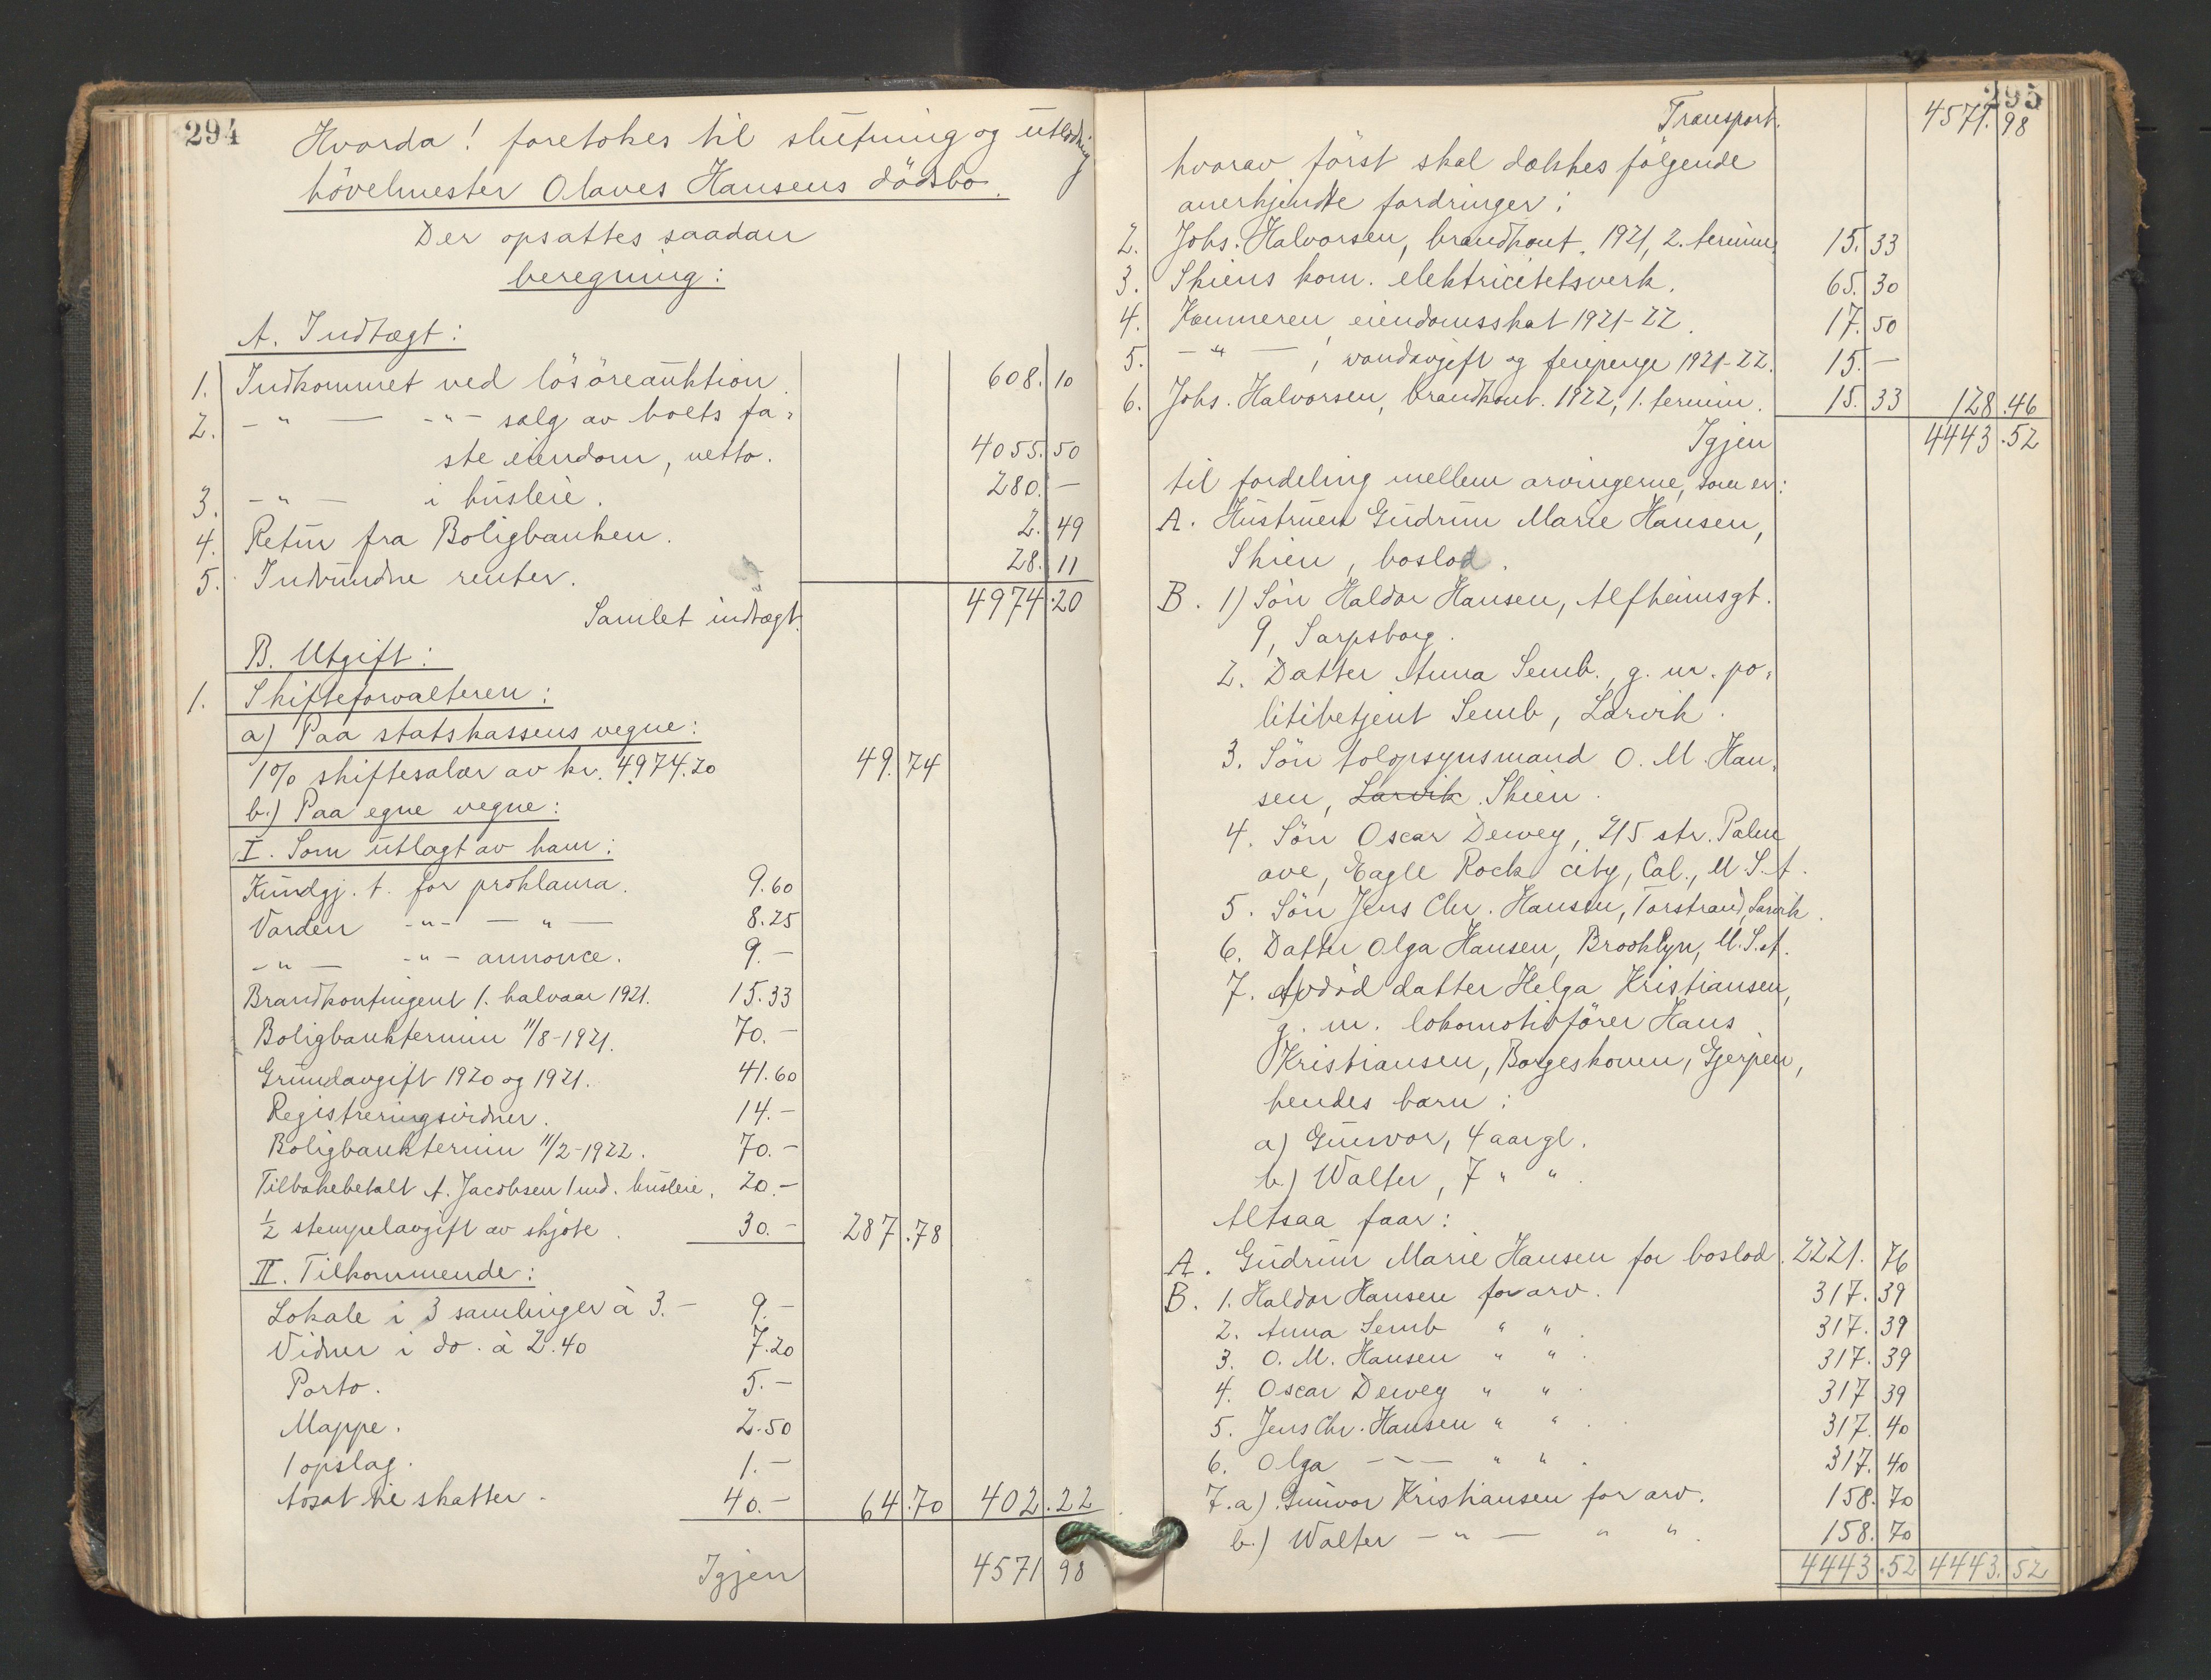 294
Hvorda! foretokes til slutning og utlodning
hövelmester Olaves Hansens dödsbo.
Der opsattes saadan
beregning:
A. Indtægt:
1. Indkommet ved lösöreauktion. 608.10
2. -"- -"- salg av boets fa-
ste eiendom, netto. 4055.50
3. -"- i husleie. 280.-
4. Retur fra Boligbanken. 2.49
5. Indvundne renter. 28.11
Samlet indtægt. 4974.20
B. Utgift:
1. Skifteforvalteren:
a) Paa statskassens vegne:
1% skiftesalær av kr. 4974.20 49.74
b.) Paa egne vegne:
I. Som utlagt av ham:
Kundgj. t. for proklama. 9.60
Varden -"- -"- 8.25
-"- -"- annonce. 9.-
Brandkontingent 1. halvaar 1921. 15.33
Boligbanktermin 11/8-1921. 70.-
Grundavgift 1920 og 1921. 41.60
Registreringsvidner. 14.-
Boligbanktermin 11/2-1922. 70.-
Tilbakebetalt A. Jacobsen 1 md. husleie. 20.-
1/2 stempelavgift av skjöte. 30.- 287.78
II. Tilkommende:
Lokale i 3 samlinger à 3.- 9.-
Vidner i do. à 2.40 7.20
Porto. 5.-
Mappe. 2.50
1 opslag. 1.-
Avsat til skatter. 40.- 64.70 402.22
Igjen 4571 98
295
Transport. 4571.98
hvorav först skal dækkes fölgende
anerkjendte fordringer:
2. Johs. Halvorsen, brandkont. 1921, 2. termin. 15.33
3. Skiens kom. elektricitetsverk. 65.30
4. Kæmneren eiendomsskat 1921-22. 17.50
5. -"-, vandavgift og feiepenge 1921-22. 15.-
6. Johs. Halvorsen, brandkont. 1922, 1. termin. 15.33 128.46
Igjen 4443.52
til fordeling mellem arvingerne, som er:
A. Hustruen Gudrun Marie Hansen,
Skien, boslod.
B. 1) Sön Haldor Hansen, Alfheimsgt.
9, Sarpsborg.
2. Datter Anna Semb., g. m. po-
litibetjent Semb, Larvik.
3. Sön tolopsynsmand O. M. Han-
sen, Larvik. Skien.
4. Sön Oscar Dewey, 215 str. Palm
ave, Eagle Rock city, Cal., U.S.A.
5. Sön Jens Chr. Hansen, Torstrand, Larvik.
6. Datter Olga Hansen, Brooklyn, U.S.A.
7. Avdöd datter Helga Kristiansen,
g. m. lokomotivförer Hans
Kristiansen, Borgeskoven, Gjerpen,
hendes barn:
a) Gunvor, 4 aar gl.
b.) Walter, 7 " "
Altsaa faar:
A. Gudrun Marie Hansen for boslod. 2221.76
B. 1. Haldor Hansen for arv. 317.39
2. Anna Semb " ". 317.39
3. O. M. Hansen " ". 317.39
4. Oscar Dewey " ". 317 39
5. Jens Chr. Hansen " ". 317.40
6. Olga -"- " ". 317.40
7. a). Gunvor Kristiansen for arv. 158.70
b.) Walter -"- " ". 158.70
4443.52 4443.52